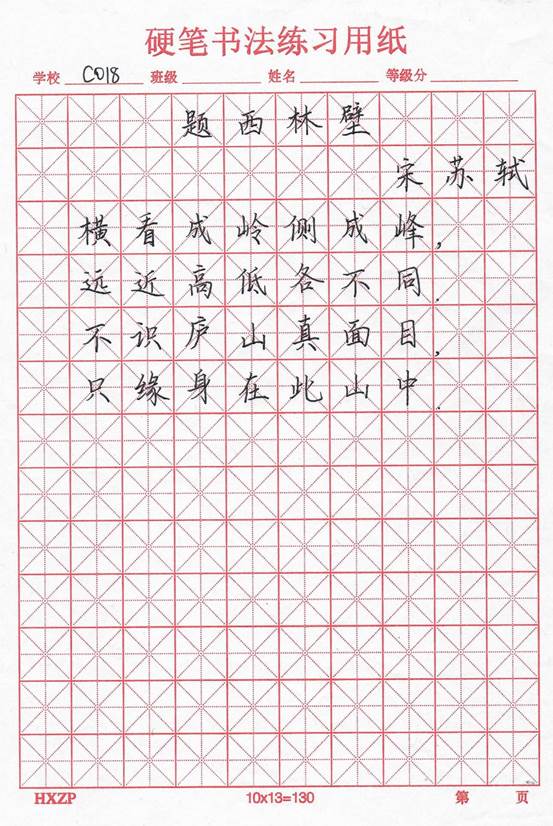 硬笔书法练习用纸
学校 C018 班级 姓名 等级分
题西林壁
宋 苏轼
横看成岭侧成峰,
远近高低各不同.
不识庐山真面目,
只缘身在此山中.
HXZP 10x13=130 第 页